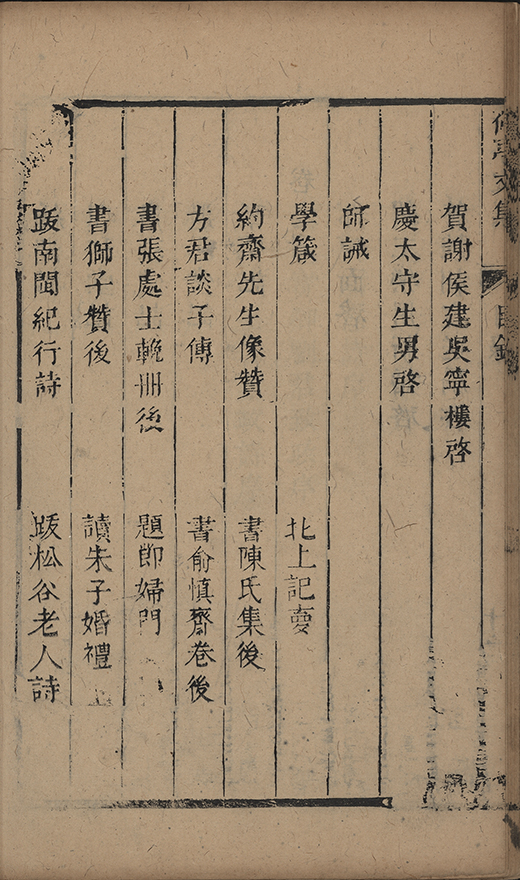 亭文集
目錄
賀謝侯建吳寧樓啓
慶太守生男啓
師誡
學箴 北上記夢
約齋先生像贊 書陳氏集後
方君談子傳 書俞慎齋卷後
書張處士輓冊後 題節婦門
書獅子贊後 讀朱子婚禮
跋南閩紀行詩 跋松谷老人詩